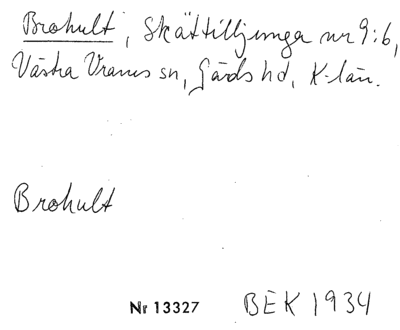 Brohult, Skättilljunga nr 9:6,
Västra Vrams sn, Gärds hd, K-län.
Brohult
Nr 13327 BEK 1934